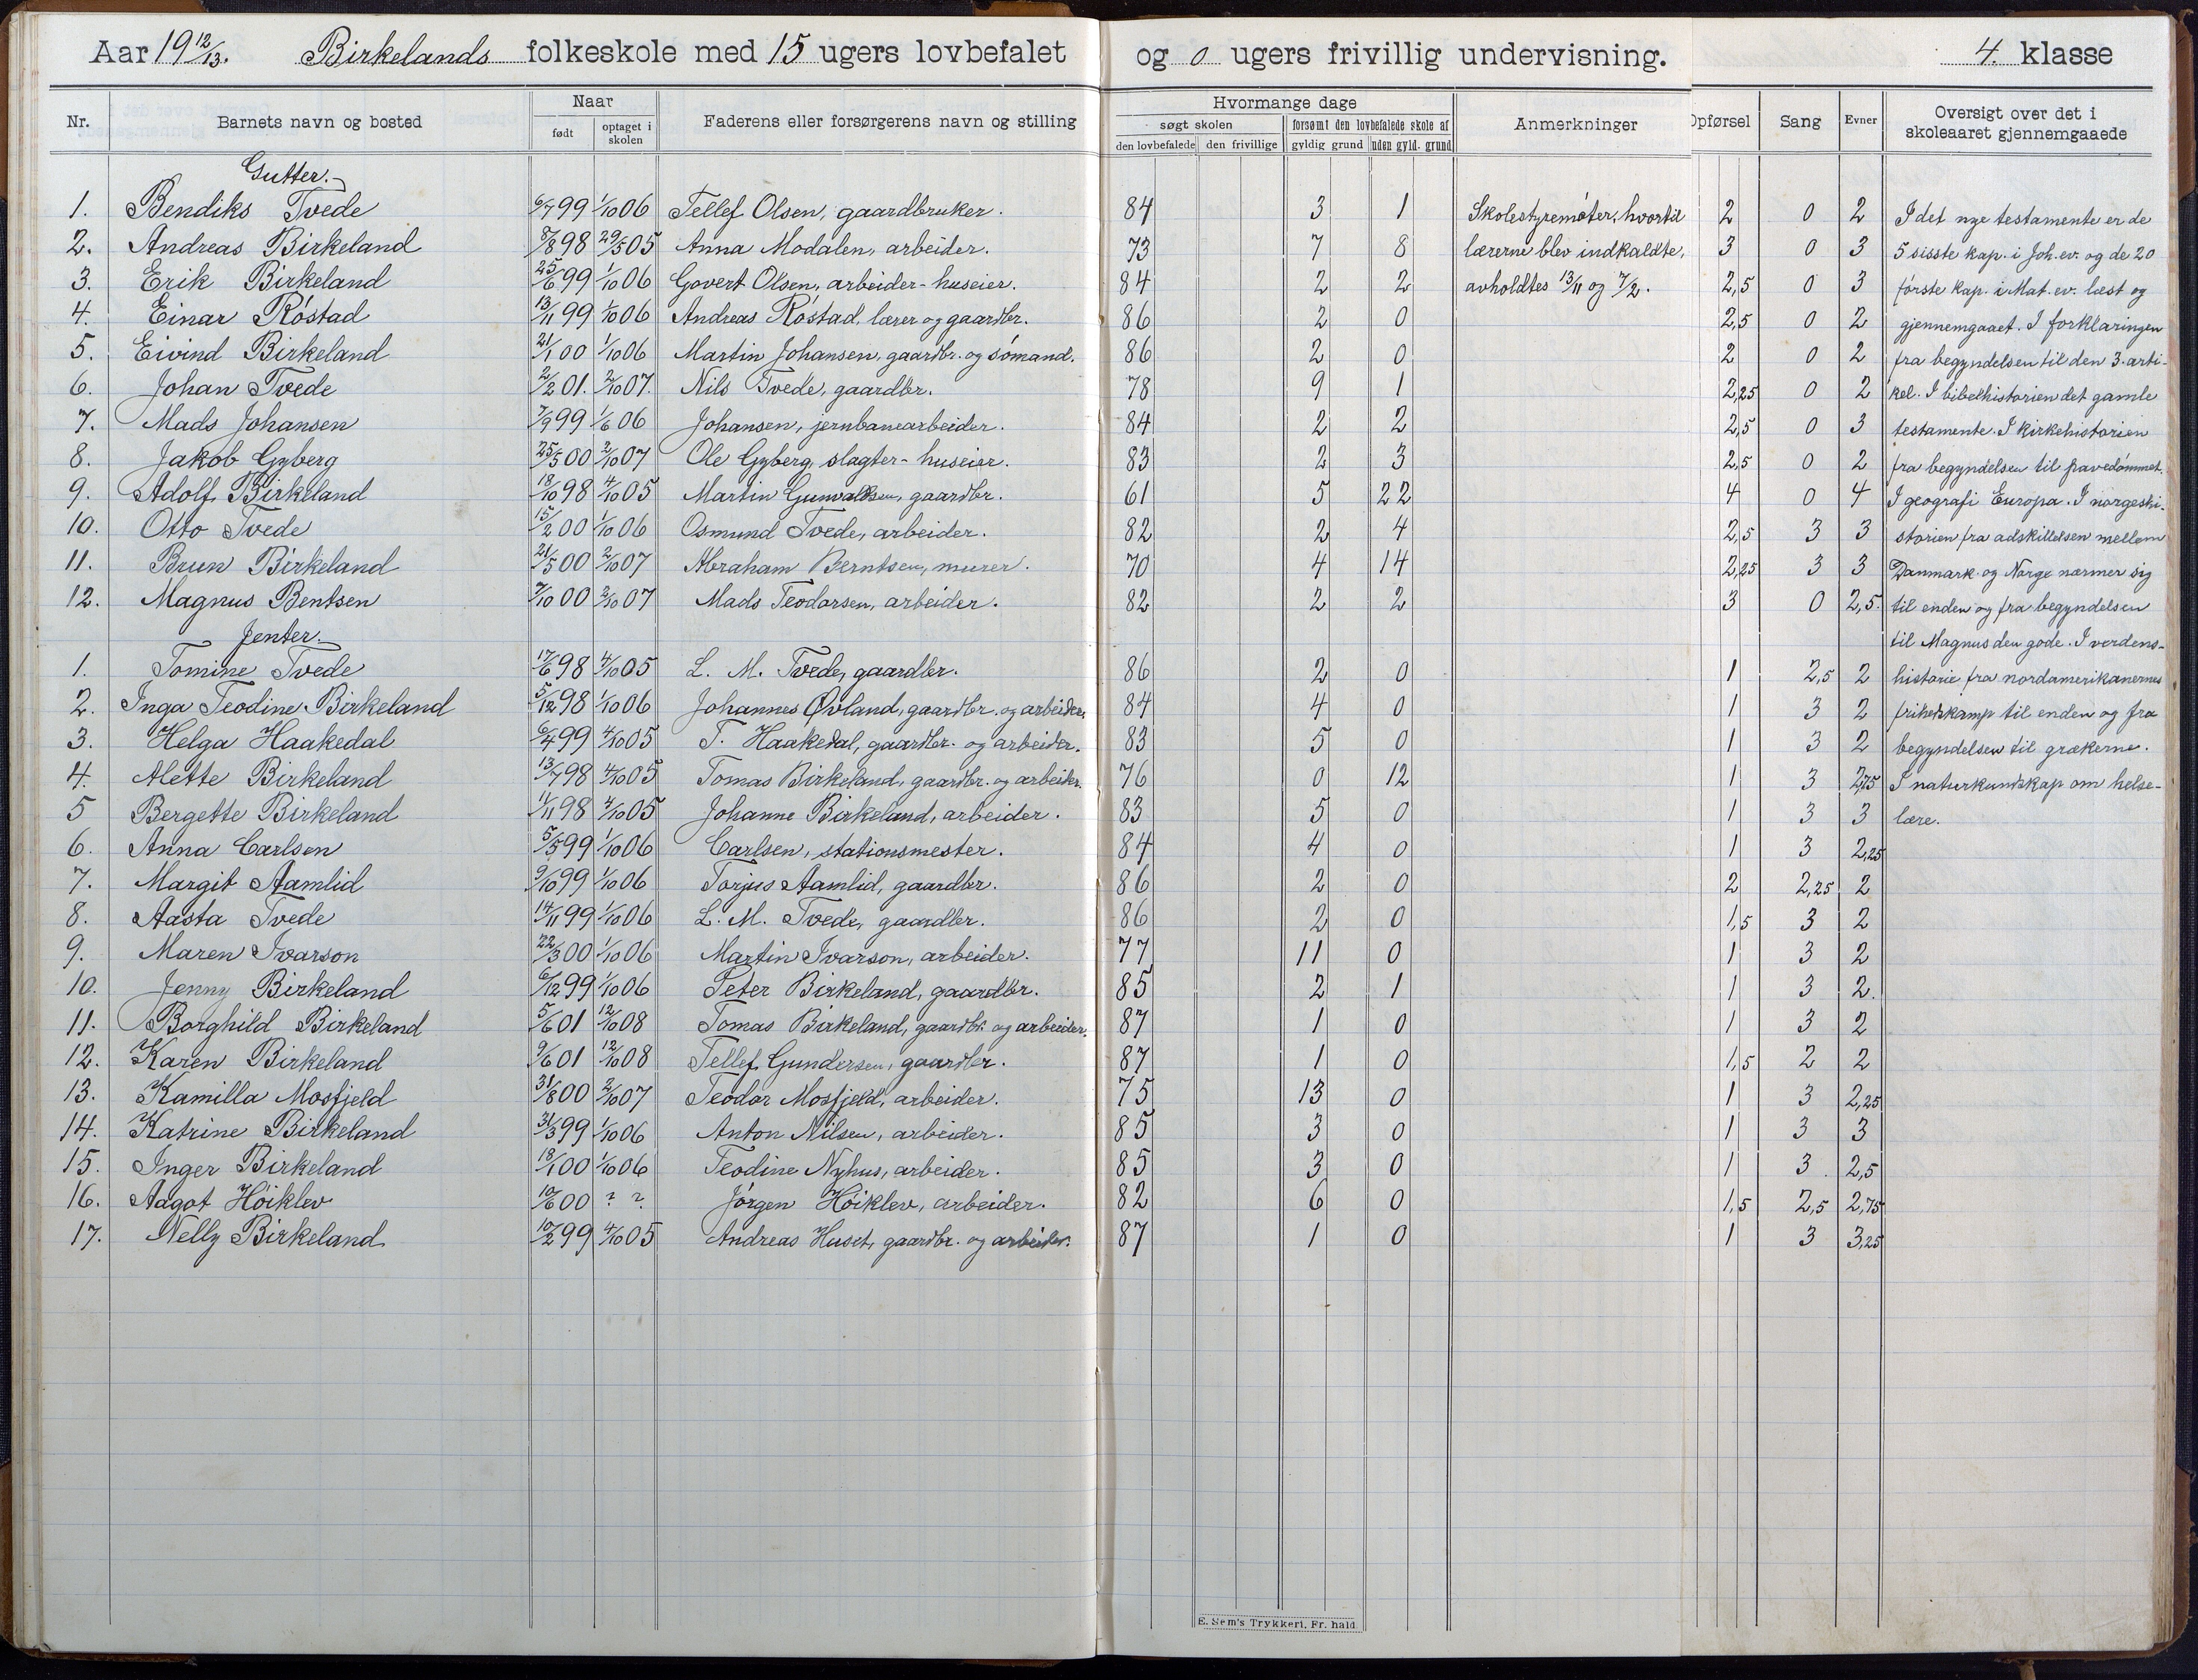 Aar 19 12/13. Birkelands folkeskole med 15 ugers lovbefalet og 0 ugers frivillig undervisning. 4. klasse
Nr. Barnets navn og bosted Naar født optaget i skolen Faderens eller forsørgerens navn og stilling Hvormange dage søgt skolen den lovbefalede den frivillige forsømt den lovbefalede skole af gyldig grund uden gyld. grund Anmerkninger Opførsel Sang Evner Oversigt over det i skoleaaret gjennemgaaede
Gutter.
1. Bendiks Tvede 6/7 99 1/10 06 Tellef Olsen, gaardbruker. 84 3 1 Skolestyremøter, hvortil 2 0 2 I det nye testamente er de
2. Andreas Birkeland 8/8 98 29/5 05 Anna Modalen, arbeider. 73 7 8 lærerne blev indkaldte, 3 0 3 5 sisste kap. i Joh. ev. og de 20
3. Erik Birkeland 25/6 99 1/10 06 Govert Olsen, arbeider-huseier. 84 2 2 avholdtes 13/11 og 7/2. 2,5 0 3 første kap. i Mat. ev. læst og
4. Einar Røstad 13/11 99 1/10 06 Andreas Røstad, lærer og gaardbr. 86 2 0 2,5 0 2 gjennemgaaet. I forklaringen
5. Eivind Birkeland 21/1 00 1/10 06 Martin Johansen, gaardbr. og sømand. 86 2 0 2 0 2 fra begyndelsen til den 3. arti-
6. Johan Tvede 2/2 01. 2/10 07. Nils Tvede, gaardbr. 78 9 1 2,25 0 2 kel. I bibelhistorien det gamle
7. Mads Johansen 7/9 99 1/6 06 Johansen, jernbanearbeider. 84 2 2 2,5 0 3 testamente. I kirkehistorien
8. Jakob Gyberg 25/5 00 2/10 07 Ole Gyberg, slagter-huseier. 83 2 3 2,5 0 2 fra begyndelsen til pavedømmet.
9. Adolf Birkeland 18/10 98 4/10 05 Martin Gunvaldsen, gaardbr. 61 5 22 4 0 4 I geografi Europa. I norgeshi-
10. Otto Tvede 15/2 00 1/10 06 Osmund Tvede, arbeider. 82 2 4 2,5 3 3 storien fra adskillelsen mellem
11. Brun Birkeland 21/5 00 2/10 07 Abraham Berntsen, murer. 70 4 14 2,25 3 3 Danmark og Norge nærmer sig
12. Magnus Bentsen 7/10 00 2/10 07 Mads Teodorsen, arbeider. 82 2 2 3 0 2,5. til enden og fra begyndelsen
Jenter. til Magnus den gode. I verdens-
1. Tomine Tvede 17/6 98 4/10 05 L. M. Tvede, gaardbr. 86 2 0 1 2,5 2 historie fra nordamerikanernes
2. Inga Teodine Birkeland 5/12 98 1/10 06 Johannes Øvland, gaardbr. og arbeider. 84 4 0 1 3 2 frihedskamp til enden og fra
3. Helga Haakedal 6/4 99 4/10 05 T. Haakedal, gaardbr. og arbeider. 83 5 0 1 3 2 begyndelsen til grækerne.
4. Alette Birkeland 13/7 98 4/10 05 Tomas Birkeland, gaardbr. og arbeider. 76 0 12 1 3 2,75 I naturkundskap om helse-
5 Bergette Birkeland 11/11 98 4/10 05 Johanne Birkeland, arbeider. 83 5 0 1 3 3 lære.
6. Anna Carlsen 5/5 99 1/10 06 Carlsen, stationsmester. 84 4 0 1 3 2,25
7. Margit Aamlid 9/10 99 1/10 06 Torjus Aamlid, gaardbr. 86 2 0 2 2,25 2
8. Aasta Tvede 14/11 99 1/10 06 L. M. Tvede, gaardbr. 86 2 0 1,5 3 2
9. Maren Ivarson 22/3 00 1/10 06 Martin Ivarson, arbeider. 77 11 0 1 3 2
10. Jenny Birkeland 6/12 99 1/10 06 Peter Birkeland, gaardbr. 85 2 1 1 3 2.
11. Borghild Birkeland 5/6 01 12/10 08 Tomas Birkeland, gaardbr. og arbeider. 87 1 0 1 3 2
12. Karen Birkeland 9/6 01 12/10 08 Tellef Gundersen, gaardbr. 87 1 0 1,5 2 2
13. Kamilla Mosfjeld 31/8 00 2/10 07 Teodor Mosfjeld, arbeider. 75 13 0 1 3 2,25
14. Katrine Birkeland 31/3 99 1/10 06 Anton Nilsen, arbeider. 85 3 0 1 3 3
15. Inger Birkeland 18/1 00 1/10 06 Teodine Nyhus, arbeider. 85 3 0 1 3 2,5
16. Aagot Høiklev 10/6 00 ? ? Jørgen Høiklev, arbeider. 82 6 0 1,5 2,5 2,75
17. Nelly Birkeland 10/2 99 4/10 05 Andreas Huset, gaardbr. og arbeider. 87 1 0 1 3 3,25
E. Sem's Trykkeri, Fr. hald